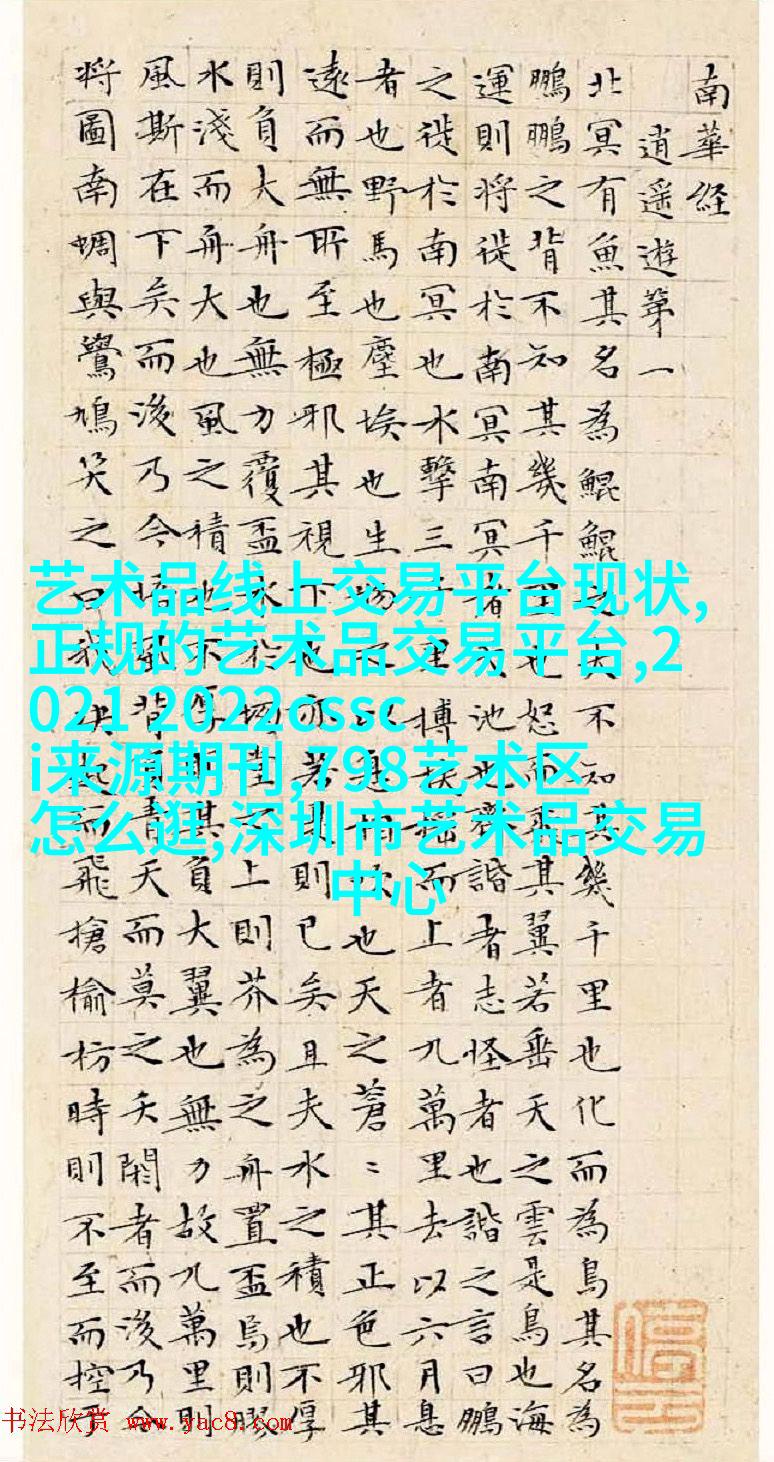 南華経
逍遥遊第一
北冥有魚其名為鯤鯤之大不知其幾千里也化而為鳥其名為
鵬鵬之背不知其幾千里也怒而飛其翼若垂天之雲是鳥也海
運則将徙於南冥南冥者天池也齊諧者志怪者也諧之言曰鵬
之徙於南冥也水擊三千里搏扶揺而上者九萬里去以六月息
者也野馬也塵埃也生物之以息相吹也天之蒼〻其正色邪其
遠而無所至極邪其視下也亦若是則已矣且夫水之積也不厚
則負大舟也無力覆盃水於坳堂之上則芥為之舟置盃焉則膠
水淺而舟大也風之積也不厚則其負大翼也無力故九萬里則
風斯在下矣而後乃今培風背負青天而莫之夭閼者而後乃今
将圖南蜩與鷽鳩笑之曰我決起而飛搶榆枋時則不至而控
艺术品线上交易平台现状,
正规的艺术品交易平台,2
021 2022cssc
i来源期刊,798艺术区
怎么逛,深圳市艺术品交易
中心
书法欣赏 www.yac8.com